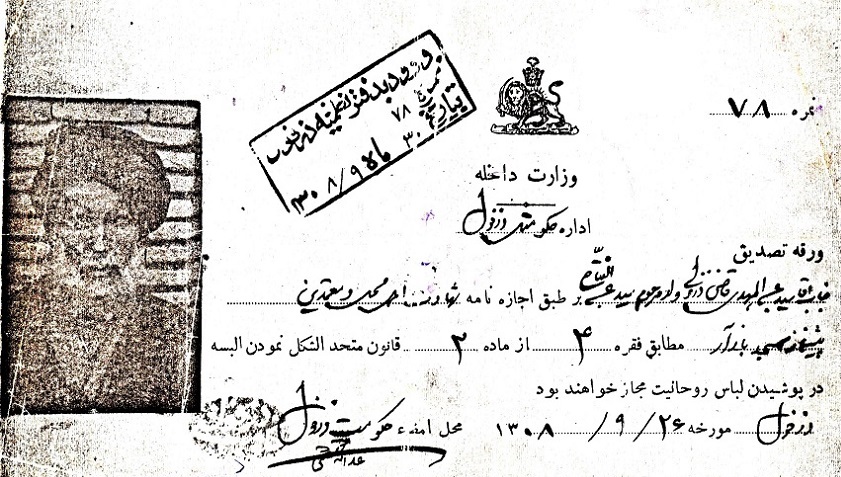 نمره ۷۸
وارد دفتر نظمیه دزفول
نمره ۷۸
بتاریخ ۳۰ ماه ۹/۸/۱۳۰
وزارت داخله
اداره حکومتی دزفول
ورقه تصدیق
جناب آقا سید عبدالمهدی قاضی دزفولی ولد مرحوم سید عبدالفتاح بر طبق اجازه نامه شهادت اهل محل و معتمدین
پیشنماز مسجد بازار مطابق فقره ۴ از ماده ۲ قانون متحد الشکل نمودن البسه
در پوشیدن لباس روحانیت مجاز خواهند بود
دزفول مورخه ۲۶ / ۹ / ۱۳۰۸ محل امضاء حکومت دزفول